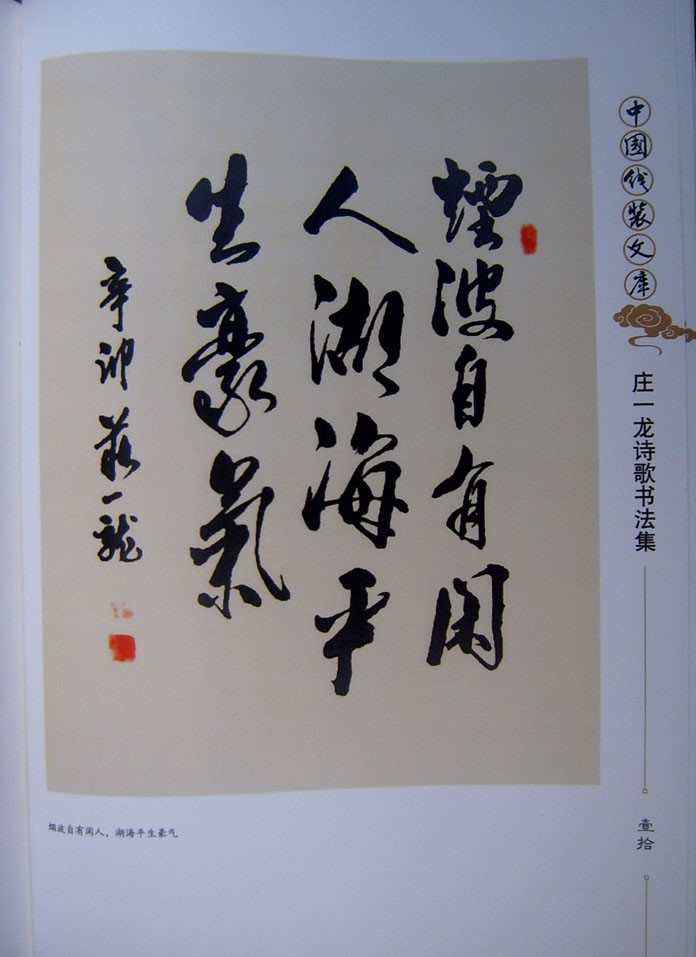 煙波自有閑
人湖海平
生豪氣
辛卯莊一龍
烟波自有闲人，湖海平生豪气
中國线装文库
庄一龙诗歌书法集
壹拾